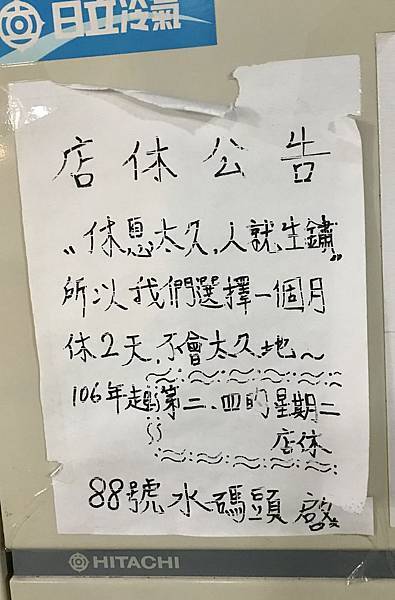 日立冷氣
店休公告
"休息太久,人就生鏽"
所以我們選擇一個月
休2天,不會太久地~
106年起第二、四的星期二
店休
88號水碼頭 啟
HITACHI